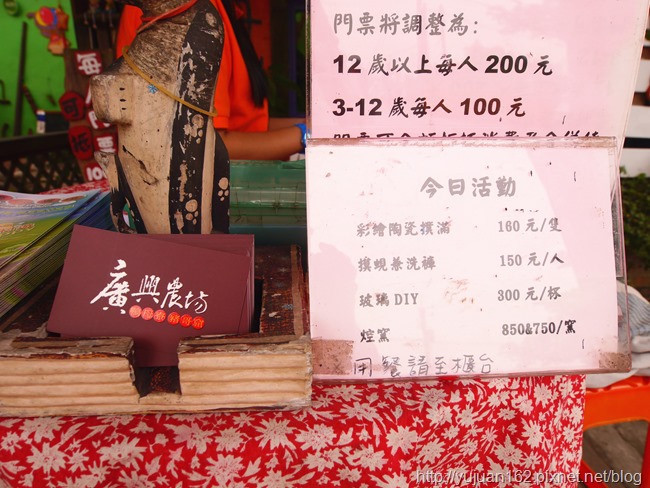 門票將調整為:
12歲以上每人200元
3-12歲每人100元
今日活動
彩繪陶瓷撲滿 160元/隻
摸蜆兼洗褲 150元/人
玻璃DIY 300元/杯
焢窯 850&750/窯
用餐請至櫃台
廣興農場
http://yujuan162.pixnet.net/blog